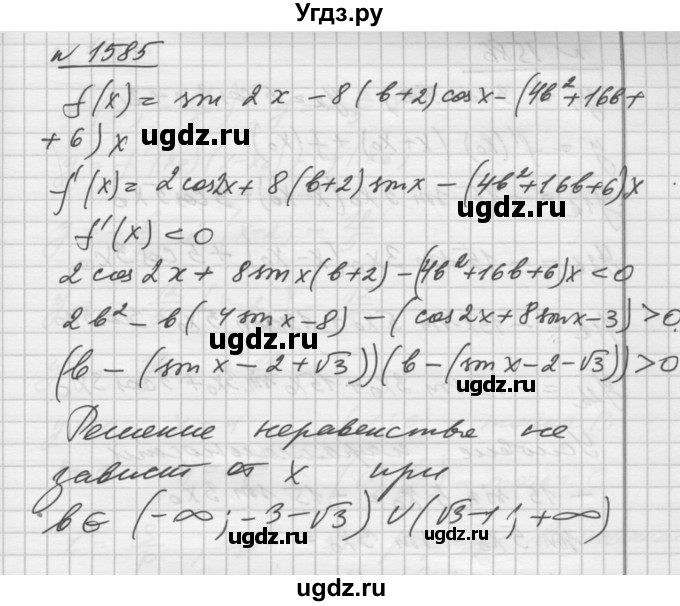 Угдз.ру
№ 1585
f(x) = sin 2x - 8(b+2) cos x - (4b²+16b+
+ 6) x
ugdz.ru ugdz.ru
f'(x) = 2cos2x + 8(b+2) sin x - (4b²+16b+6)x
f'(x) < 0
ugdz.ru
2 cos 2x + 8 sin x (b+2) - (4b²+16b+6)x < 0
2b² - b(4 sin x - 8) - (cos 2x + 8 sin x - 3) > 0
ugdz.ru ugdz.ru
(b - (sin x - 2 + √3))(b - (sin x - 2 - √3)) > 0
ugdz.ru
Решение неравенства не
зависит от x при
ugdz.ru
b ∈ (-∞; -3 - √3) ∪ (√3 - 1; +∞)
ugdz.ru ugdz.ru
ugdz.ru